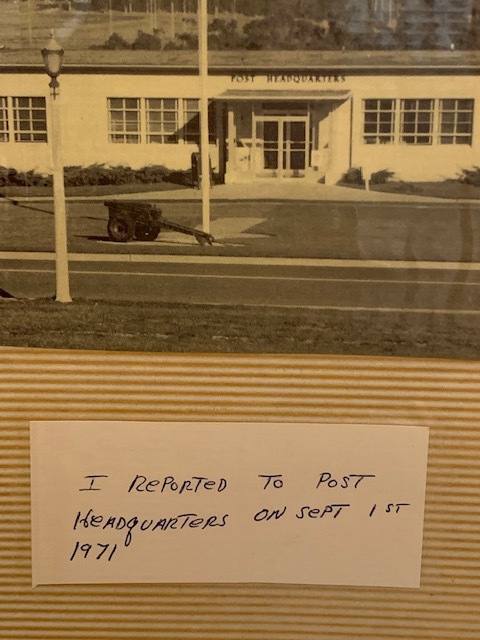 POST HEADQUARTERS
I REPORTED TO POST
HEADQUARTERS ON SEPT 1ST
1971